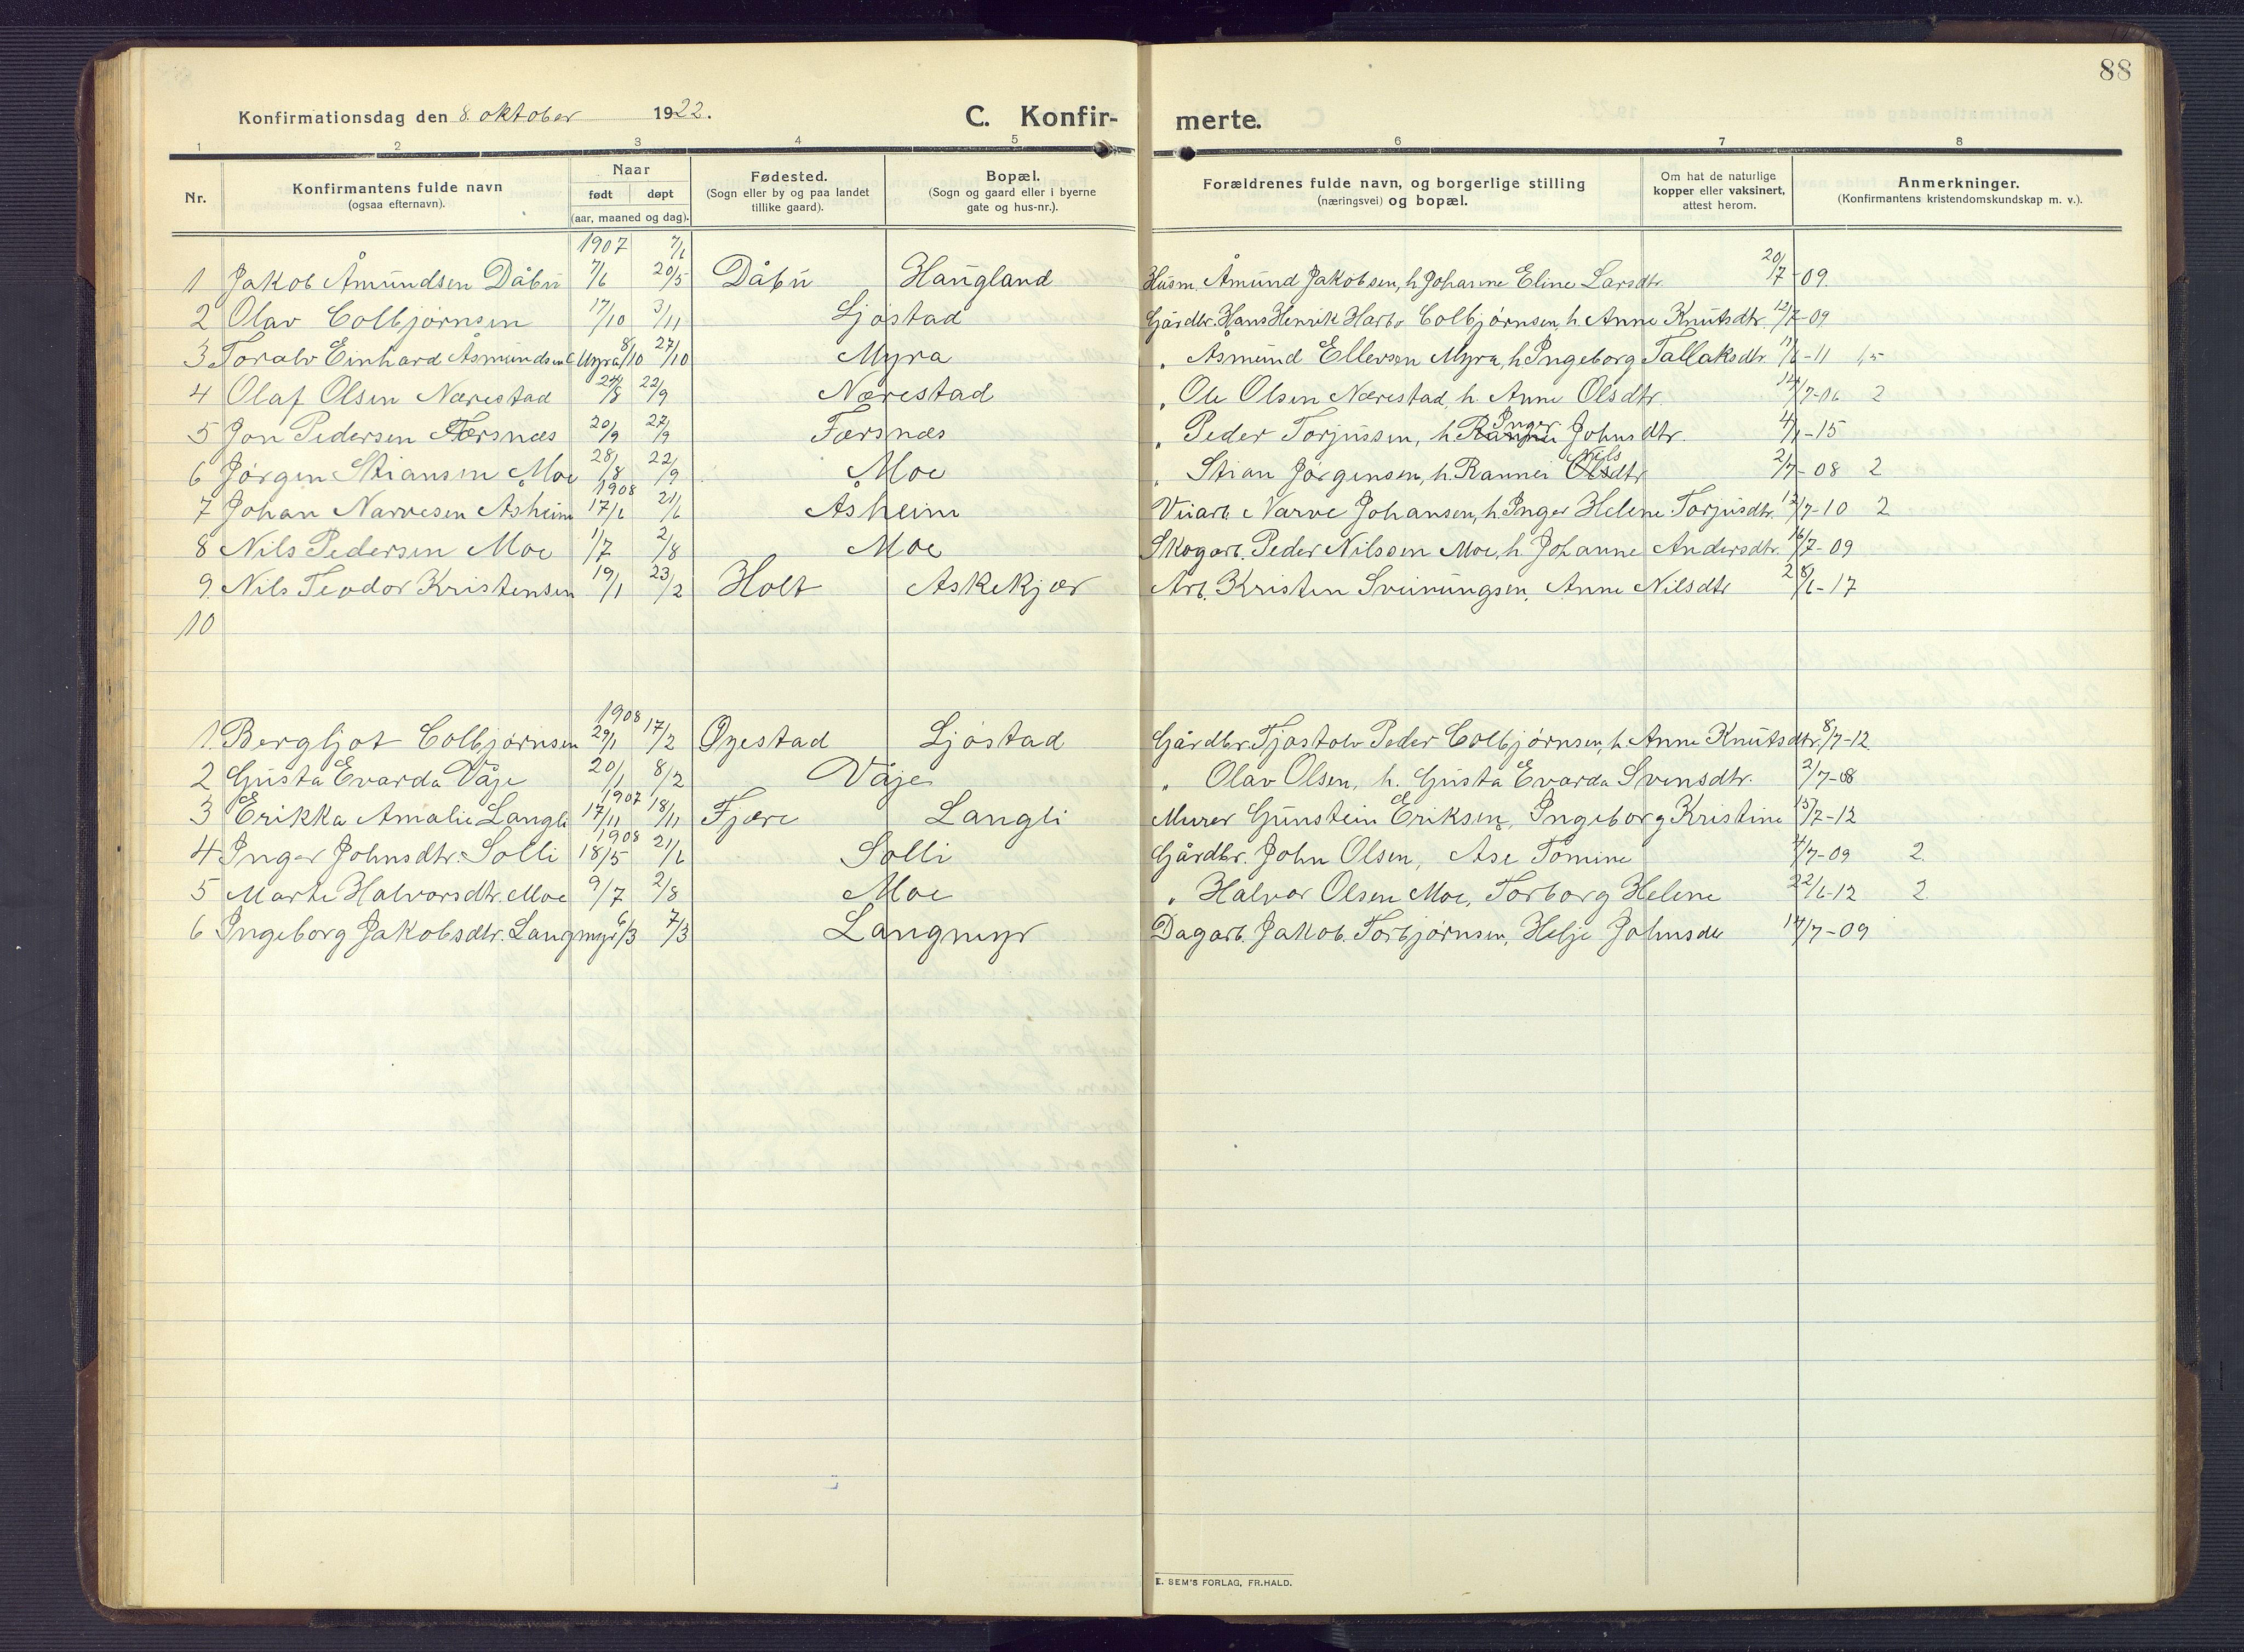 88
Konfirmationsdag den 8. oktober 1922. C. Konfir- merte.
1 2 3 4 5 6 7 8
Nr. Konfirmantens fulde navn (ogsaa efternavn). Naar født døpt (aar, maaned og dag). Fødested. (Sogn eller by og paa landet tillike gaard). Bopæl. (Sogn og gaard eller i byerne gate og hus-nr.). Forældrenes fulde navn, og borgerlige stilling (næringsvei) og bopæl. Om hat de naturlige kopper eller vaksinert, attest herom. Anmerkninger. (Konfirmantens kristendomskundskap m. v.).
1907
1 Jakob Åmundsen Dåbu 7/6 20/5 Dåbu Haugland Husm. Åmund Jakobsen, h. Johanne Eline Larsdtr. 20/7-09.
2 Olav Colbjørnsen 17/10 3/11 Ljøstad Gårdbr. Hans Henrik Harbo Colbjørnsen, h. Anne Knutsdtr. 12/7-09
3 Toralv Einhard Åsmundsen Myra 8/10 27/10 Myra " Åsmund Ellevsen Myra, h. Ingeborg Tallaksdtr. -11 1,5
4 Olaf Olsen Nærestad 24/8 22/9 Nærestad " Ole Olsen Nærestad, h. Anne Olsdtr. 14/7-06 2
5 Jon Pedersen Færsnæs 20/9 27/9 Færsnæs " Peder Torjussen, h. Inger Johnsdtr. -15
6 Jørgen Stiansen Moe 28/8 22/9 Moe " Stian Jørgensen, h. Rannei Nilsdtr 2/7-08 2
1908
7 Johan Narvesen Åsheim 17/6 21/6 Åsheim Veiarb. Narve Johansen, h. Inger Helene Torjusdtr. 12/7-10 2
8 Nils Pedersen Moe 1/7 2/8 Moe Skogarb. Peder Nilssen Moe, h. Johanne Andersdtr. 16/7-09
9. Nils Teodor Kristensen 19/1 23/2 Holt Askekjær Arb. Kristen Sveinungsen, Anne Nilsdtr 28/6-17
10
1908
1. Bergljot Colbjørnsen 29/1 17/2 Øyestad Ljøstad Gårdbr. Tjøstolv Peder Colbjørnsen, h. Anne Knutsdtr. 8/7-12.
2 Gusta Evarda Våje 20/1 8/2 Våje " Olav Olsen, h. Gusta Evarda Svensdtr. 2/7-08
1907
3 Erikka Amalie Langli 17/11 18/11 Fjære Langli Murer Gunstein Eriksen, Ingeborg Kristine 15/7-12
1908
4 Inger Johnsdtr. Solli 18/5 21/6 Solli Gårdbr. John Olsen, Åse Tomine 7/7-09 2.
5 Marte Halvorsdtr. Moe 9/7 2/8 Moe " Halvor Olsen Moe, Torborg Helene 22/6-12 2.
6 Ingeborg Jakobsdtr. Langmyr 6/3 7/3 Langmyr Dagarb. Jakob Torbjørnsen, Helje Johnsdtr 14/7-09
E. SEM'S FORLAG, FR.HALD.